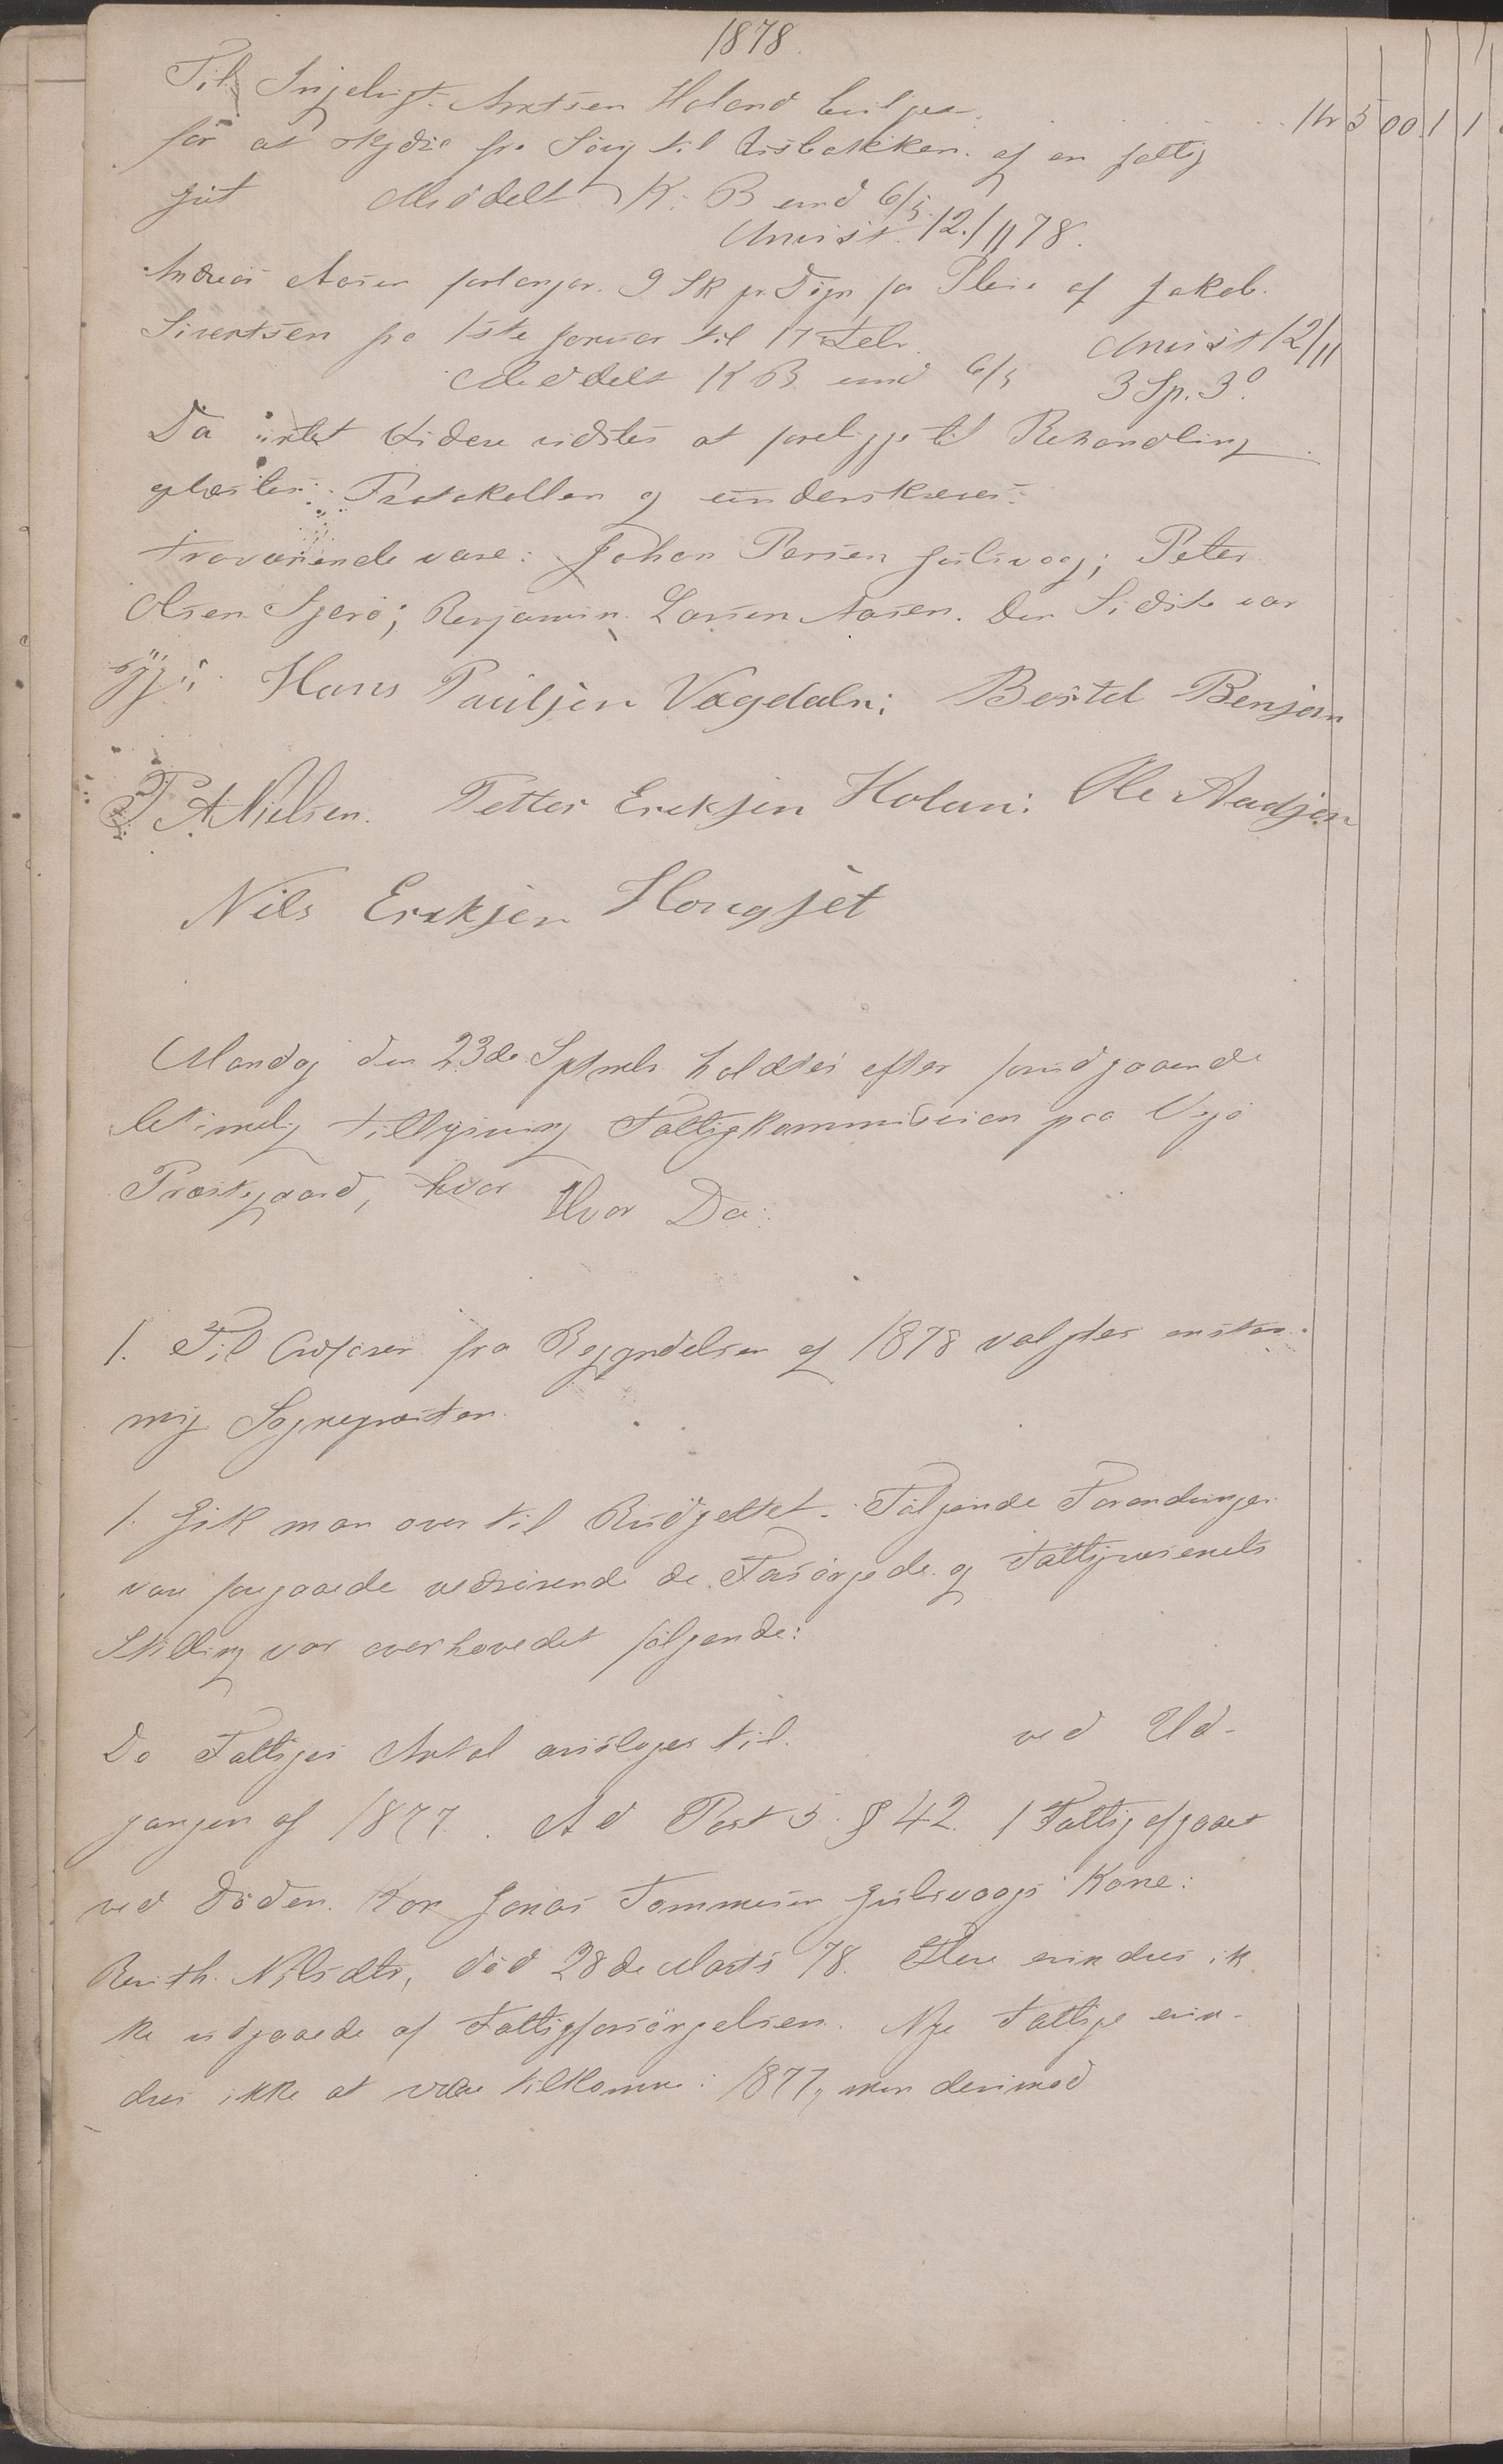 1878.
Til Ingebrigt Arntsen Holand bevilges Kr 5 00 1 1
for at skydse fra Søvig til Visbakken af en fattig
Gut Meddelt K. B. und 6/5.
Anvist 12./11 78.
Andreas Aasen forlanger 9 Sk pr. Døgn for Pleie af Jakob
Sivertsen fra 1ste Januar til 17 Febr. Anvist 12/11
Meddelt K B und 6/5 3 Sp. 3º.
Da intet videre vidstes at foreligge til Behandling
oplæstes Protokollen og underskreves.
Fraværende vare: Johan Persen Gulsvaag; Peter
Olsen; Benjamin Larsen Aasen. Den Sidste var
syg. Hans Paulsen Vagdaln; Bertel Bensen
P A Nielsen. Petter Ereksen Holan: Ole
Nils Ereksen Hongset
Mandag den 23de Sptmbr. holdtes efter forudgaaende
betimelig Tillysning Fattigkommission paa Vejø
Præstegaard, hvor Hvor Da:
1. Til Ordfører fra Begyndelsen af 1878 valgtes enstem-
mig Sognepræsten.
1. Gik man over til Budgettet. Følgende Forandringer
vare foregaaede vedrørende de Forsørgede og Fattigvæsenets
Stilling var overhovedet følgende:
De Fattiges Antal ansloges til. ved Ud-
gangen af 1877. Ad Post 5 § 42. 1 Fattig afgaaet
ved Døden. Jonas Tommesen Gulsvaags Kone:
Berith Nilsdtr, død 28de Marts 78. Flere erindres ik
ke udgaaede af Fattigforsørgelsen. Nye Fattige erin-
dres ikke at være tilkomne i 1877, men derimod